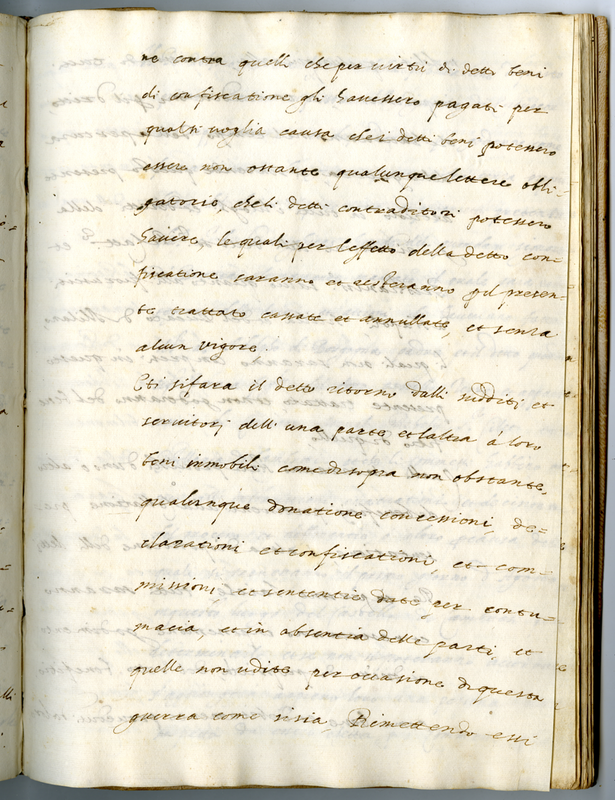 ne contra quelli che per virtù di detti beni
di confiscatione gli havessero pagati per
qualsivoglia causa che i detti beni potessero
essere non ostante qualunque lettere obli-
gatorie che li detti contraditori potessero
havere, le quali per l'effetto della detta con-
fiscatione saranno et resteranno pel presen-
te trattato cassate et annullate, et senza
alcun vigore.
Et si fara il detto ritorno dalli sudditi et
servitorj dell' una parte et l'altra à loro
beni immobili come di sopra non obstante
qualunque donatione concessioni de=
clarationi et confiscationi, et com-
missioni, et sententie date per contu-
macia, et in absentia delle parti, et
quelle non udite per occasione di questa
guerra come si sia, Rimettendo essi